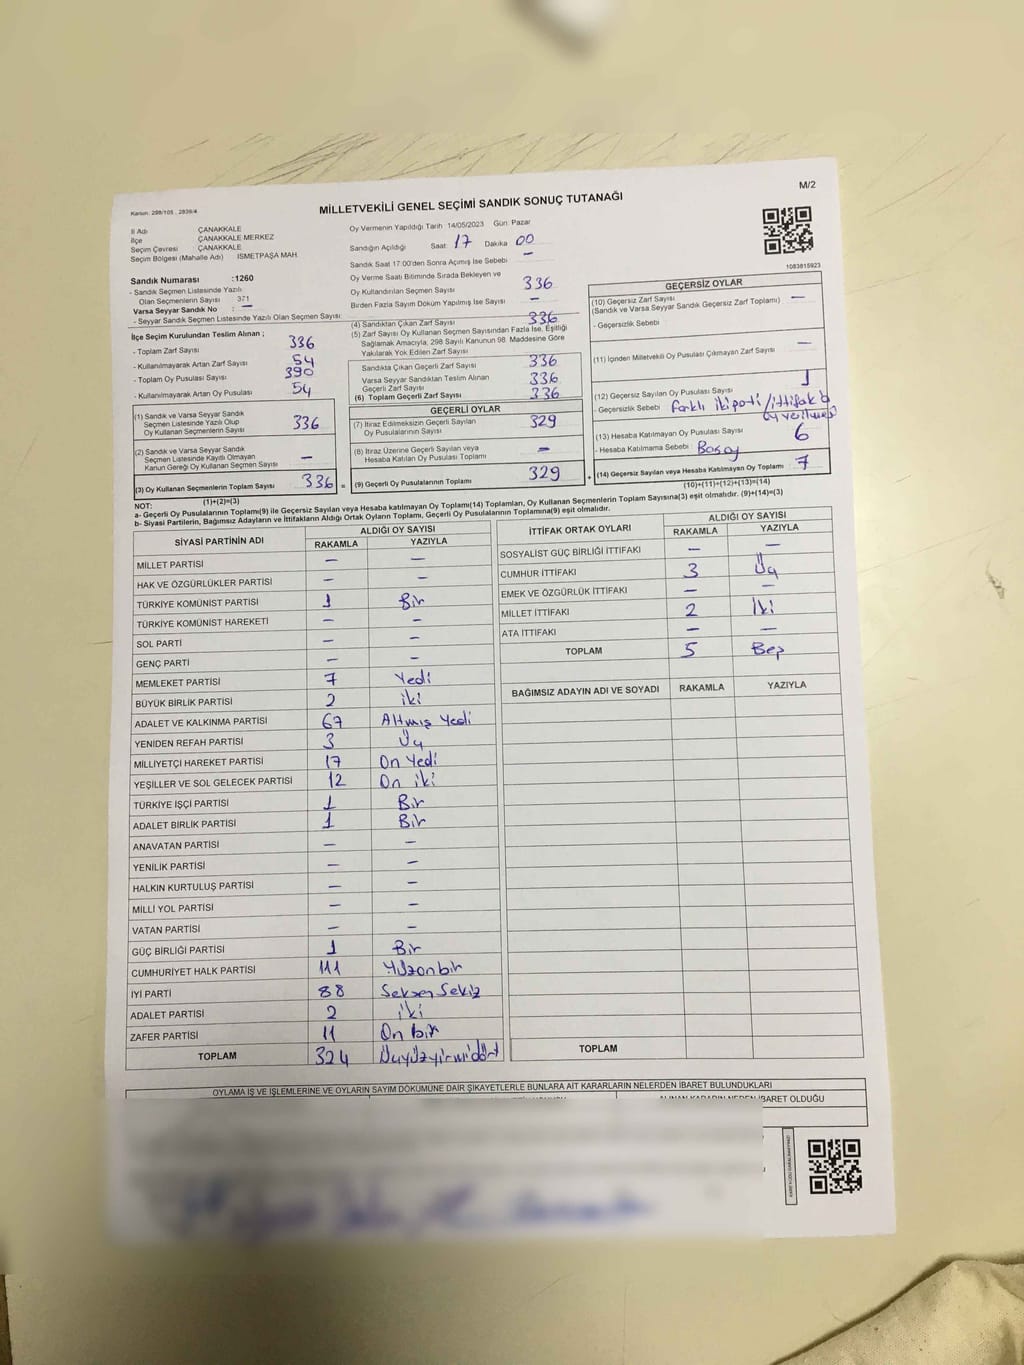 M/2
Kanun: 298/105 , 2839/4
MİLLETVEKİLİ GENEL SEÇİMİ SANDIK SONUÇ TUTANAĞI
İl Adı ÇANAKKALE
İlçe ÇANAKKALE MERKEZ
Seçim Çevresi ÇANAKKALE
Seçim Bölgesi (Mahalle Adı) İSMETPAŞA MAH.
Sandık Numarası :1260
- Sandık Seçmen Listesinde Yazılı
Olan Seçmenlerin Sayısı 371
Varsa Seyyar Sandık No : —
- Seyyar Sandık Seçmen Listesinde Yazılı Olan Seçmen Sayısı:
Oy Vermenin Yapıldığı Tarih 14/05/2023 Gün: Pazar
Sandığın Açıldığı Saat: 17 Dakika 00
Sandık Saat 17:00'den Sonra Açımış İse Sebebi —
Oy Verme Saati Bitiminde Sırada Bekleyen ve
Oy Kullandırılan Seçmen Sayısı 336
Birden Fazla Sayım Döküm Yapılmış İse Sayısı —
1083815923
İlçe Seçim Kurulundan Teslim Alınan ;
- Toplam Zarf Sayısı 336
- Kullanılmayarak Artan Zarf Sayısı 54
- Toplam Oy Pusulası Sayısı 390
- Kullanılmayarak Artan Oy Pusulası 54
(1) Sandık ve Varsa Seyyar Sandık
Seçmen Listesinde Yazılı Olup
Oy Kullanan Seçmenlerin Sayısı 336
(2) Sandık ve Varsa Seyyar Sandık
Seçmen Listesinde Kaydı Olmayan
Kanun Gereği Oy Kullanan Seçmen Sayısı —
(3) Oy Kullanan Seçmenlerin Toplam Sayısı 336 =
(1)+(2)=(3)
(4) Sandıktan Çıkan Zarf Sayısı 336
(5) Zarf Sayısı Oy Kullanan Seçmen Sayısından Fazla İse, Eşitliği
Sağlamak Amacıyla, 298 Sayılı Kanunun 98. Maddesine Göre
Yakılarak Yok Edilen Zarf Sayısı
Sandıkta Çıkan Geçerli Zarf Sayısı 336
Varsa Seyyar Sandıktan Teslim Alınan
Geçerli Zarf Sayısı 336
(6) Toplam Geçerli Zarf Sayısı 336
GEÇERLİ OYLAR
(7) İtiraz Edilmeksizin Geçerli Sayılan
Oy Pusulalarının Sayısı 329
(8) İtiraz Üzerine Geçerli Sayılan veya
Hesaba Katılan Oy Pusulası Toplamı —
(9) Geçerli Oy Pusulalarının Toplamı 329 +
GEÇERSİZ OYLAR
(10) Geçersiz Zarf Sayısı
(Sandık ve Varsa Seyyar Sandık Geçersiz Zarf Toplamı) —
- Geçersizlik Sebebi
(11) İçinden Milletvekili Oy Pusulası Çıkmayan Zarf Sayısı —
(12) Geçersiz Sayılan Oy Pusulası Sayısı 1
- Geçersizlik Sebebi Farklı iki parti/ittifak'a
oy verilmesi
(13) Hesaba Katılmayan Oy Pusulası Sayısı 6
- Hesaba Katılmama Sebebi : Boş oy
(14) Geçersiz Sayılan veya Hesaba Katılmayan Oy Toplamı 7
(10)+(11)+(12)+(13)=(14)
NOT:
a- Geçerli Oy Pusulalarının Toplamı(9) ile Geçersiz Sayılan veya Hesaba katılmayan Oy Toplamı(14) Toplamları, Oy Kullanan Seçmenlerin Toplam Sayısına(3) eşit olmalıdır. (9)+(14)=(3)
b- Siyasi Partilerin, Bağımsız Adayların ve İttifakların Aldığı Ortak Oyların Toplamı, Geçerli Oy Pusulalarının Toplamına(9) eşit olmalıdır.
SİYASİ PARTİNİN ADI ALDIĞI OY SAYISI
RAKAMLA YAZIYLA
MİLLET PARTİSİ — —
HAK VE ÖZGÜRLÜKLER PARTİSİ — —
TÜRKİYE KOMÜNİST PARTİSİ 1 Bir
TÜRKİYE KOMÜNİST HAREKETİ — —
SOL PARTİ — —
GENÇ PARTİ — —
MEMLEKET PARTİSİ 7 Yedi
BÜYÜK BİRLİK PARTİSİ 2 iki
ADALET VE KALKINMA PARTİSİ 67 Altmış Yedi
YENİDEN REFAH PARTİSİ 3 Üç
MİLLİYETÇİ HAREKET PARTİSİ 17 On Yedi
YEŞİLLER VE SOL GELECEK PARTİSİ 12 On iki
TÜRKİYE İŞÇİ PARTİSİ 1 Bir
ADALET BİRLİK PARTİSİ 1 Bir
ANAVATAN PARTİSİ — —
YENİLİK PARTİSİ — —
HALKIN KURTULUŞ PARTİSİ — —
MİLLİ YOL PARTİSİ — —
VATAN PARTİSİ — —
GÜÇ BİRLİĞİ PARTİSİ 1 Bir
CUMHURİYET HALK PARTİSİ 111 Yüzonbir
İYİ PARTİ 88 Seksen Sekiz
ADALET PARTİSİ 2 iki
ZAFER PARTİSİ 11 On bir
TOPLAM 324 Üçyüzyirmidört
İTTİFAK ORTAK OYLARI ALDIĞI OY SAYISI
RAKAMLA YAZIYLA
SOSYALİST GÜÇ BİRLİĞİ İTTİFAKI — —
CUMHUR İTTİFAKI 3 Üç
EMEK VE ÖZGÜRLÜK İTTİFAKI — —
MİLLET İTTİFAKI 2 İki
ATA İTTİFAKI — —
TOPLAM 5 Beş
BAĞIMSIZ ADAYIN ADI VE SOYADI RAKAMLA YAZIYLA
TOPLAM
OYLAMA İŞ VE İŞLEMLERİNE VE OYLARIN SAYIM DÖKÜMÜNE DAİR ŞİKAYETLERLE BUNLARA AİT KARARLARIN NELERDEN İBARET BULUNDUKLARI
ALINAN KARARIN NEDEN İBARET OLDUĞU